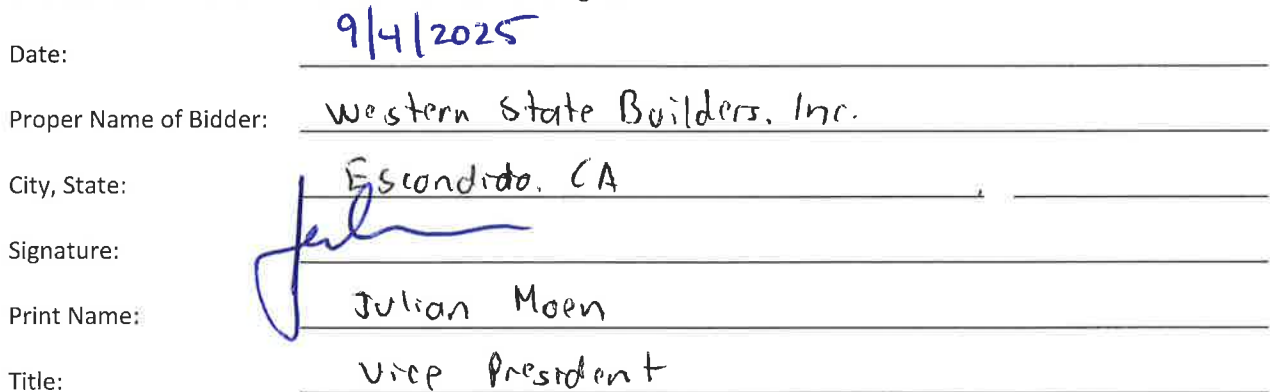 Date: 9/4/2025
Proper Name of Bidder: Western State Builders, Inc.
City, State: Escondido, CA ,
Signature:
Print Name: Julian Moen
Title: Vice President